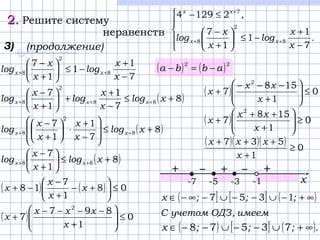 2. Решите систему
неравенств
3) (продолжение)
4^x − 129 ≤ 2^(x+7),
log_(x+8) ((7 − x)/(x + 1))^2 ≤ 1 − log_(x+8) (x + 1)/(x − 7).
log_(x+8) ((7 − x)/(x + 1))^2 ≤ 1 − log_(x+8) (x + 1)/(x − 7)
(a − b)^2 = (b − a)^2
log_(x+8) ((x − 7)/(x + 1))^2 + log_(x+8) (x + 1)/(x − 7) ≤ log_(x+8) (x + 8)
log_(x+8) (((x − 7)/(x + 1))^2 · (x + 1)/(x − 7)) ≤ log_(x+8) (x + 8)
log_(x+8) ((x − 7)/(x + 1)) ≤ log_(x+8) (x + 8)
(x + 8 − 1)((x − 7)/(x + 1) − (x + 8)) ≤ 0
(x + 7)((x − 7 − x^2 − 9x − 8)/(x + 1)) ≤ 0
(x + 7)((−x^2 − 8x − 15)/(x + 1)) ≤ 0
(x + 7)((x^2 + 8x + 15)/(x + 1)) ≥ 0
(x + 7)(x + 3)(x + 5)/(x + 1) ≥ 0
+ − + − +
-7 -5 -3 -1 x
x ∈ (−∞; −7] ∪ [−5; −3] ∪ (−1; +∞)
С учетом ОДЗ, имеем
x ∈ (−8; −7) ∪ [−5; −3] ∪ (7; +∞).